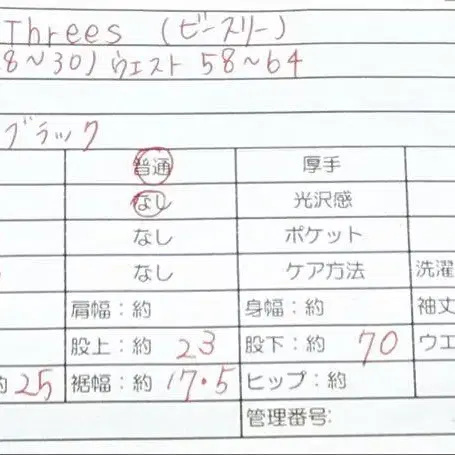 Threes （ビースリー）
8～30）ウエスト 58～64
ブラック
普通 厚手
なし 光沢感
なし ポケット
なし ケア方法 洗濯
肩幅：約 身幅：約 袖丈
股上：約 23 股下：約 70 ウエ
約 25 裾幅：約 17.5 ヒップ：約
管理番号: